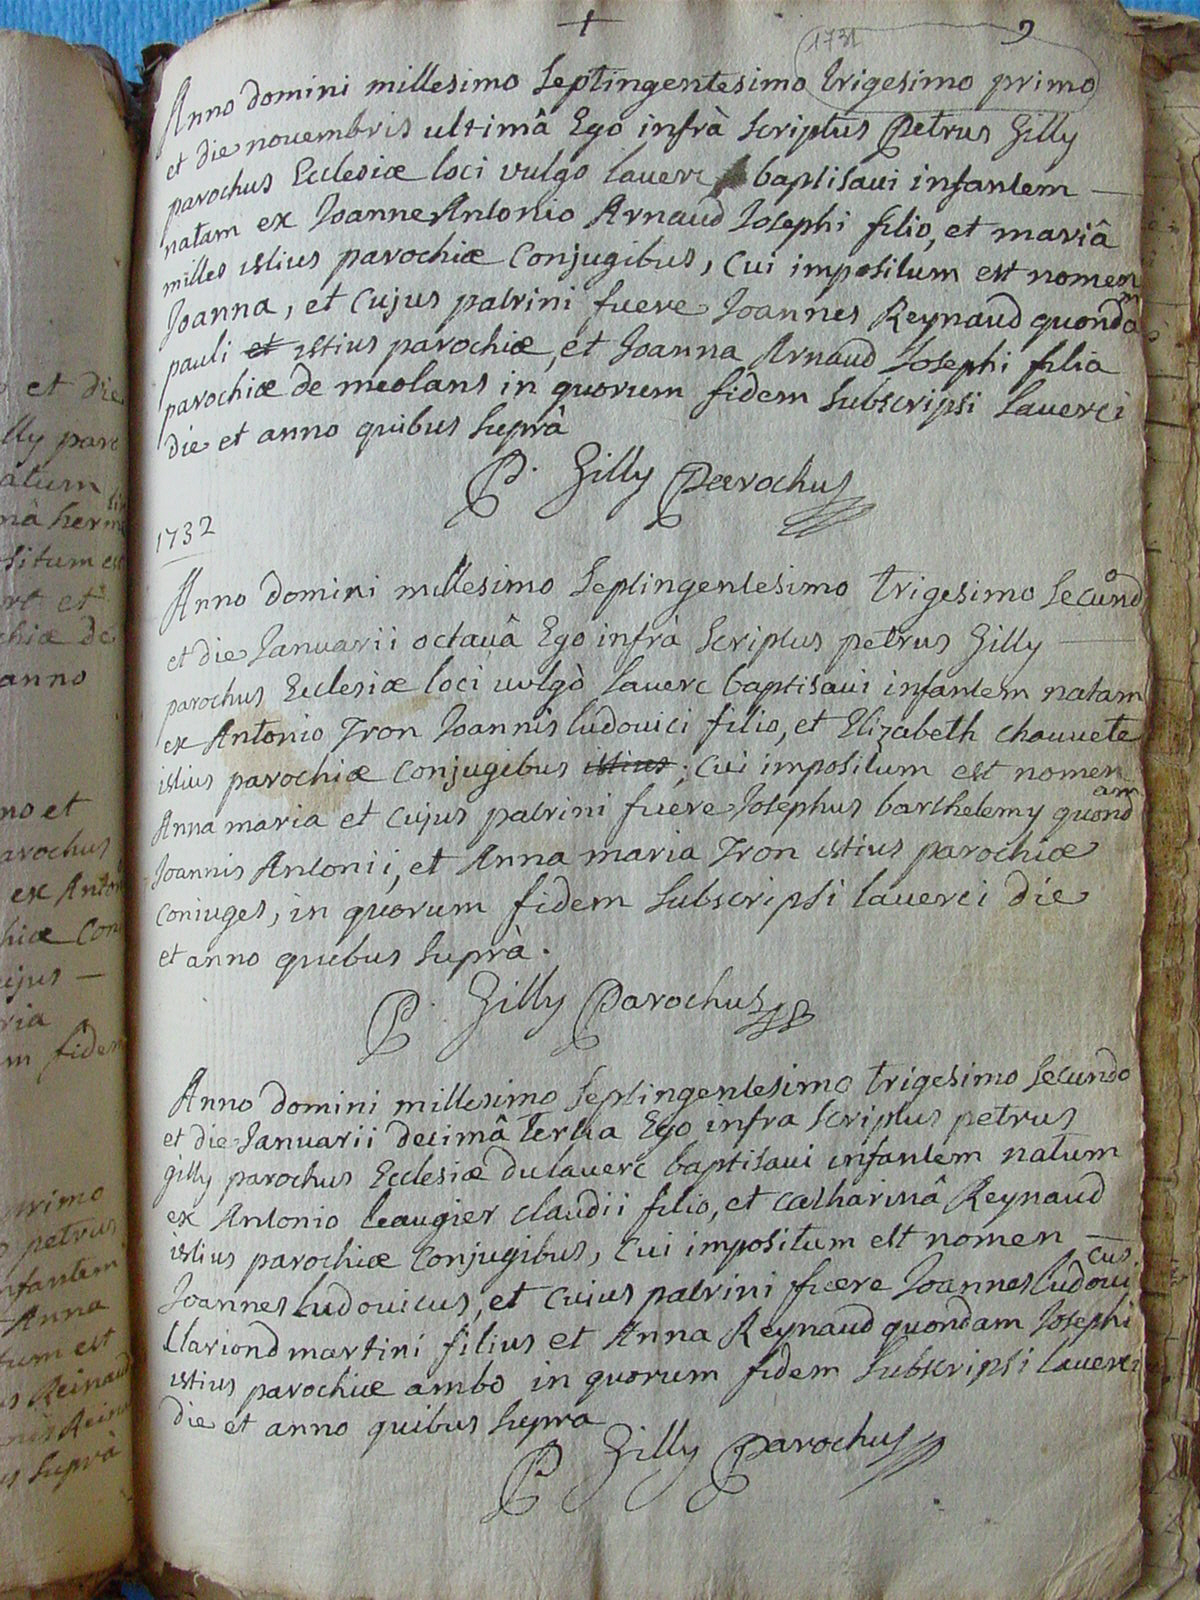 + 9
1731
Anno domini millesimo septingentesimo trigesimo primo
et die novembris ultimâ Ego infrà scriptus Petrus Gilly
parochus Ecclesiæ loci vulgo lauerc baptisaui infantem —
natam ex Joanne Antonio Arnaud Josephi filio, et mariâ
milles istius parochiæ Conjugibus, Cui impositum est nomen
Joanna, et Cujus patrini fuere Joannes Reynaud quondam
pauli et istius parochiæ, et Joanna Arnaud Josephi filia
parochiæ de meolans in quorum fidem subscripsi lauerci
die et anno quibus suprà
P. Gilly Parochus
1732
Anno domini millesimo septingentesimo trigesimo secundo
et die Januarii octauâ Ego infrà scriptus petrus Gilly —
parochus Ecclesiæ loci uulgò lauerc baptisaui infantem natam
ex Antonio Tron Joannis ludouici filio, et Elizabeth chauuete
istius parochiæ Conjugibus istius; Cui impositum est nomen
Anna maria et Cujus patrini fuere Josephus barthelemy quondam
Joannis Antonii, et Anna maria Tron istius parochiæ
Coniuges, in quorum fidem subscripsi lauerci die
et anno quibus suprà.
P. Gilly Parochus
Anno domini millesimo septingentesimo trigesimo secundo
et die Januarii decimâ tertia Ego infra scriptus petrus
gilly parochus Ecclesiæ du lauerc baptisaui infantem natum
ex Antonio leaugier claudii filio, et catharinâ Reynaud
istius parochiæ Conjugibus, Cui impositum est nomen —
Joannes ludouicus, et Cuius patrini fuere Joannes ludouicus
Clariond martini filius et Anna Reynaud quondam Josephi
istius parochiæ ambo in quorum fidem subscripsi lauerci
die et anno quibus supra
P. Gilly Parochus